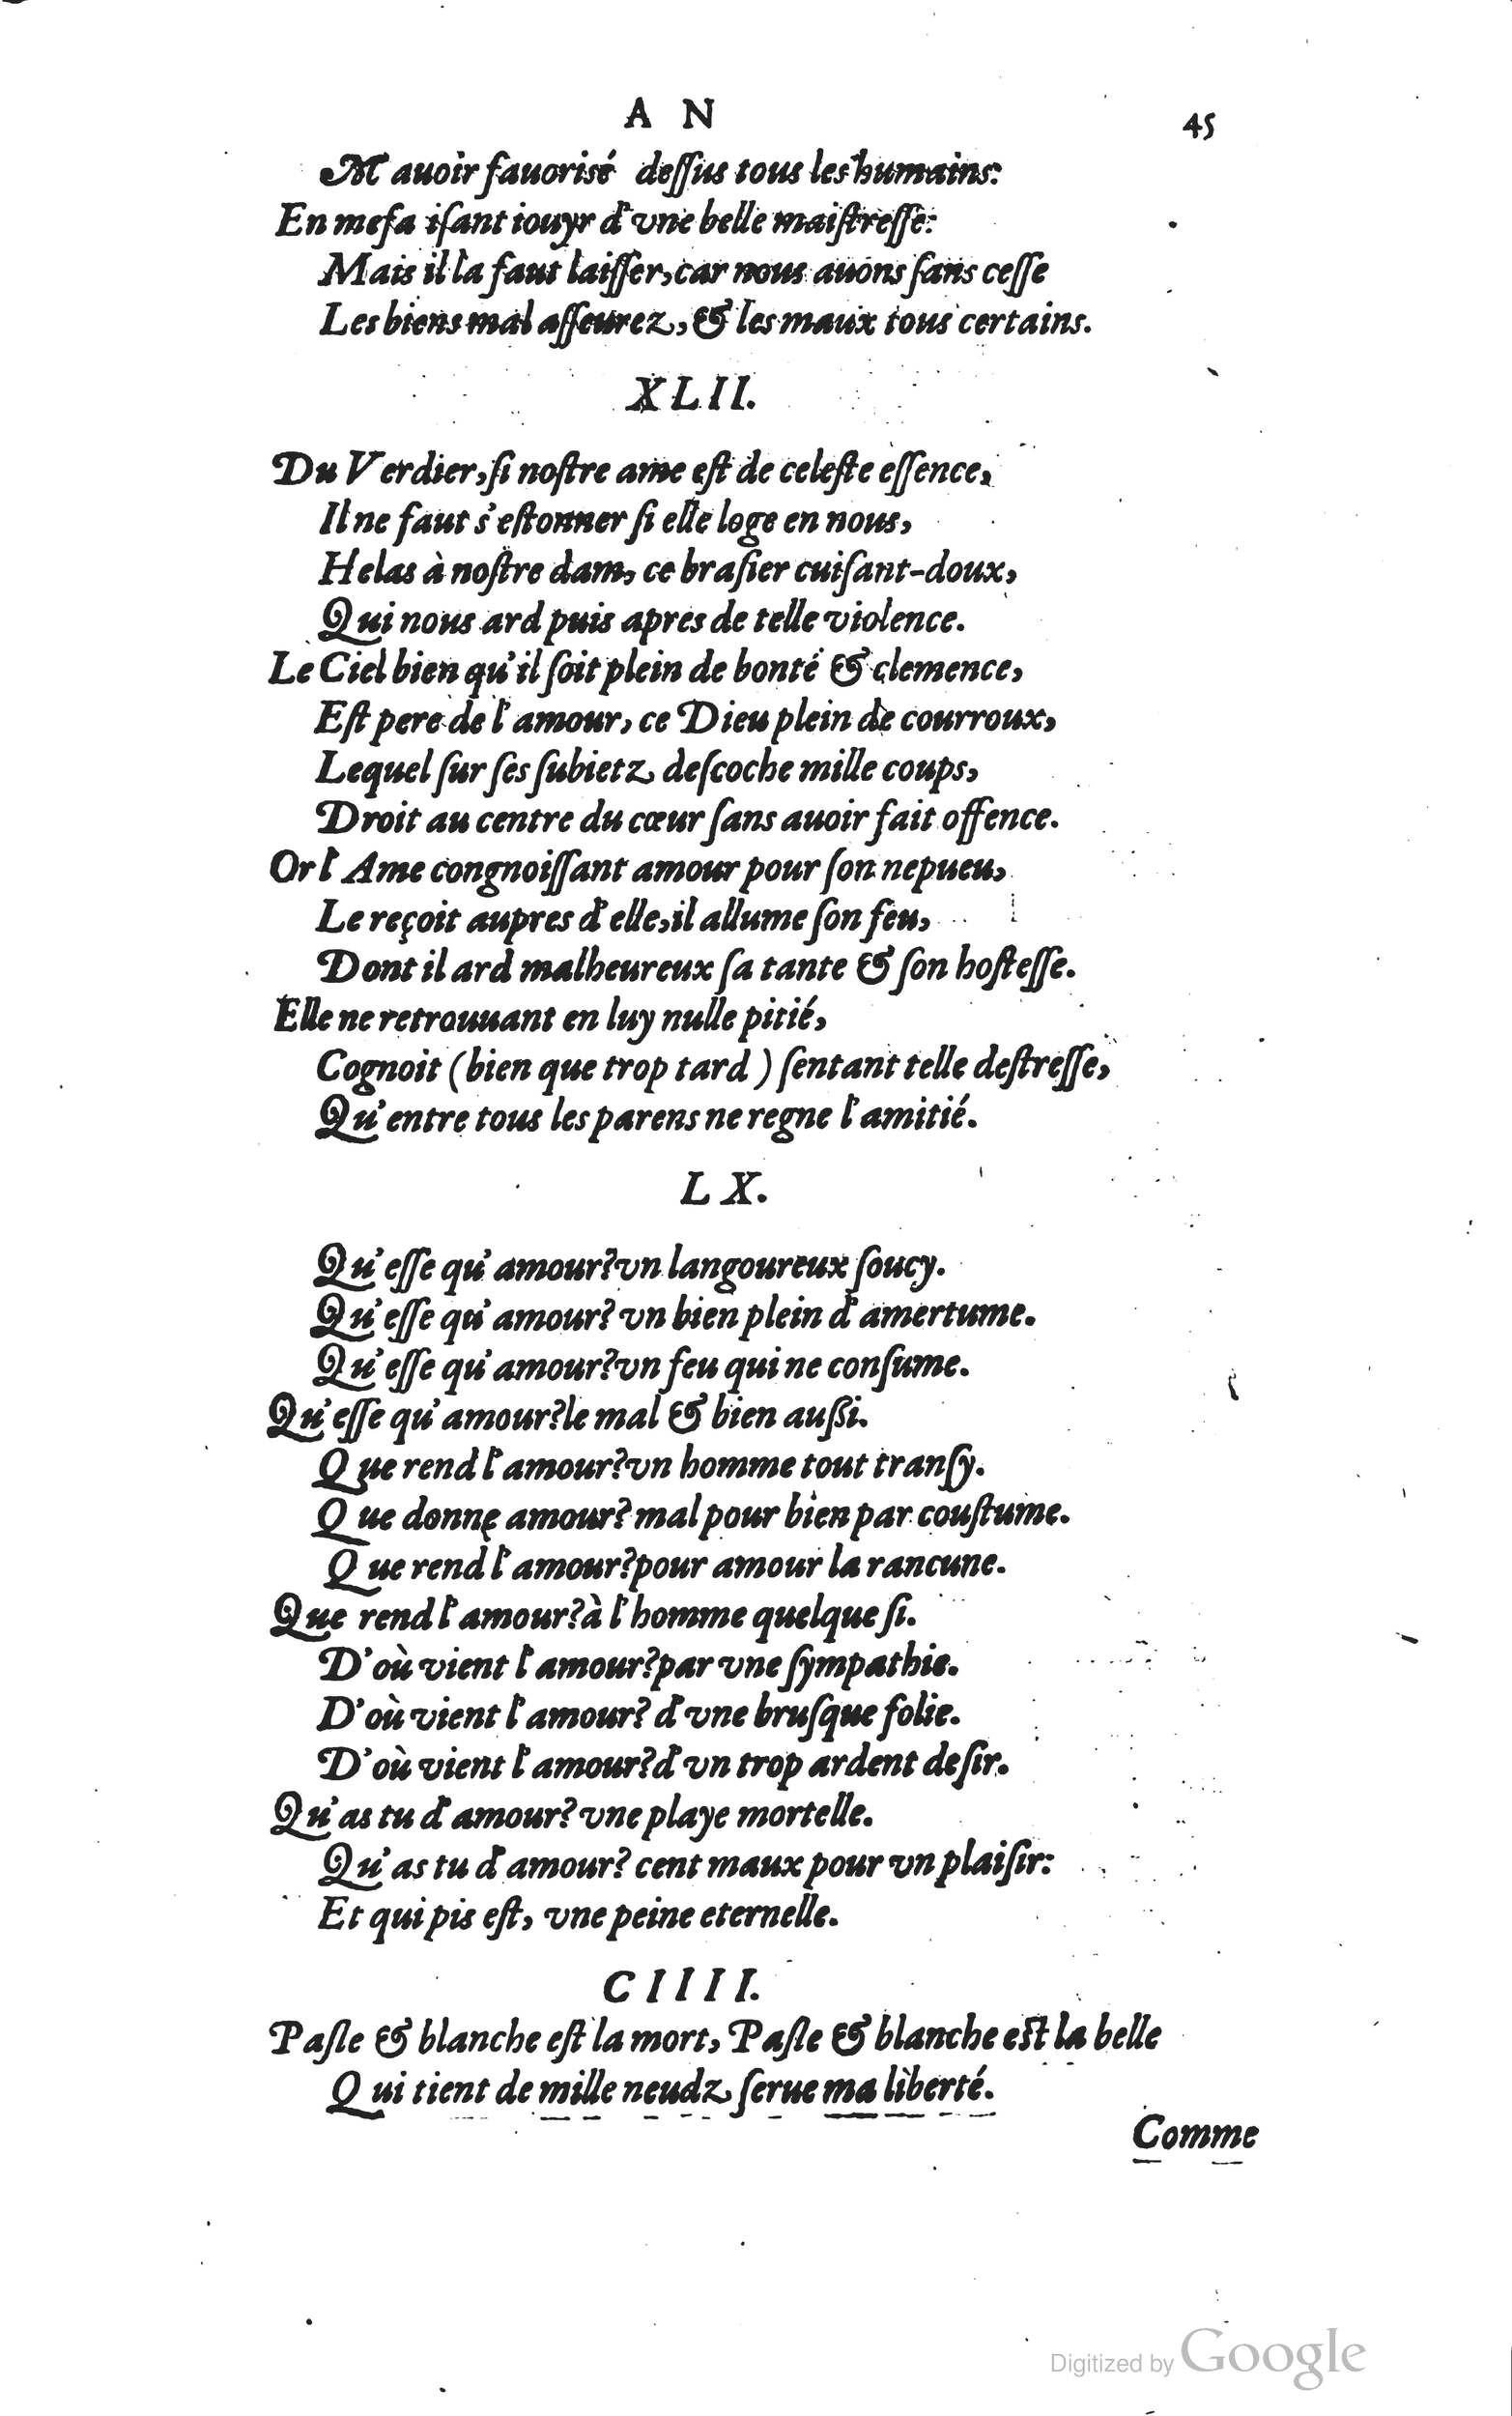 A N
45
M'auoir fauorisé dessus tous les humains:
En mefa isant iouyr d'vne belle maistresse:
Mais il la faut laisser, car nous auons sans cesse
Les biens mal asseurez, & les maux tous certains.
XLII.
Du Verdier, si nostre ame est de celeste essence,
Il ne faut s'estonner si elle loge en nous,
Helas à nostre dam, ce brasier cuisant-doux,
Qui nous ard puis apres de telle violence.
Le Ciel bien qu'il soit plein de bonté & clemence,
Est pere de l'amour, ce Dieu plein de courroux,
Lequel sur ses subietz descoche mille coups,
Droit au centre du cœur sans auoir fait offence.
Or l'Ame congnoissant amour pour son nepueu,
Le reçoit aupres d'elle, il allume son feu,
Dont il ard malheureux sa tante & son hostesse.
Elle ne retrouuant en luy nulle pitié,
Cognoit (bien que trop tard) sentant telle destresse,
Qu'entre tous les parens ne regne l'amitié.
LX.
Qu'esse qu'amour? vn langoureux soucy.
Qu'esse qu'amour? vn bien plein d'amertume.
Qu'esse qu'amour? vn feu qui ne consume.
Qu'esse qu'amour? le mal & bien aussi.
Que rend l'amour? vn homme tout transy.
Que donne amour? mal pour bien par coustume.
Que rend l'amour? pour amour la rancune.
Que rend l'amour? à l'homme quelque si.
D'où vient l'amour? par vne sympathie.
D'où vient l'amour? d'vne brusque folie.
D'où vient l'amour? d'vn trop ardent desir.
Qu'as tu d'amour? vne playe mortelle.
Qu'as tu d'amour? cent maux pour vn plaisir:
Et qui pis est, vne peine eternelle.
CIIII.
Pasle & blanche est la mort, Pasle & blanche est la belle
Qui tient de mille neudz serue ma liberté.
Comme
Digitized by Google